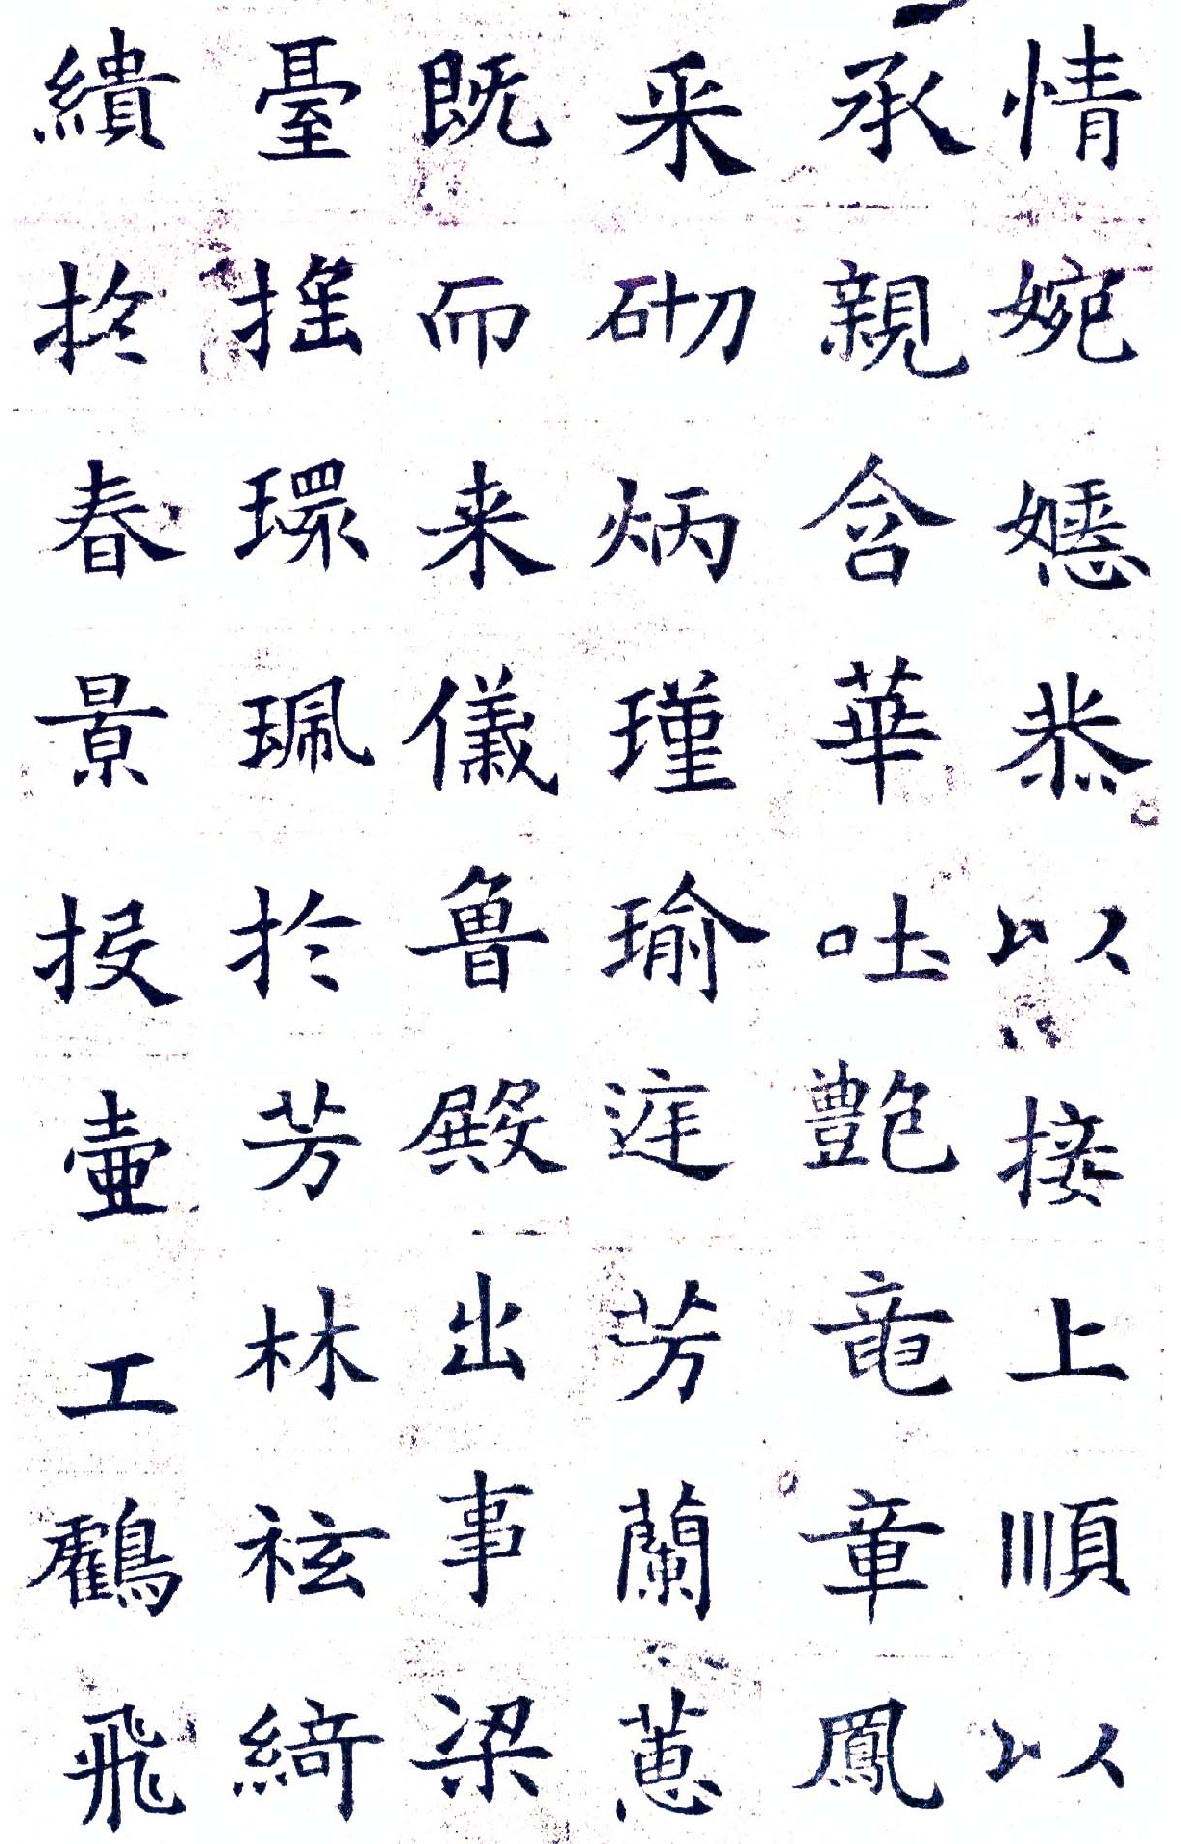 情婉嬺恭以接上順以
承親含華吐艷竜章鳳
采砌炳瑾瑜遝芳蘭蕙
既而来儀魯殿出事梁
臺搖環珮於芳林袨綺
繢於春景投壷工鸖飛